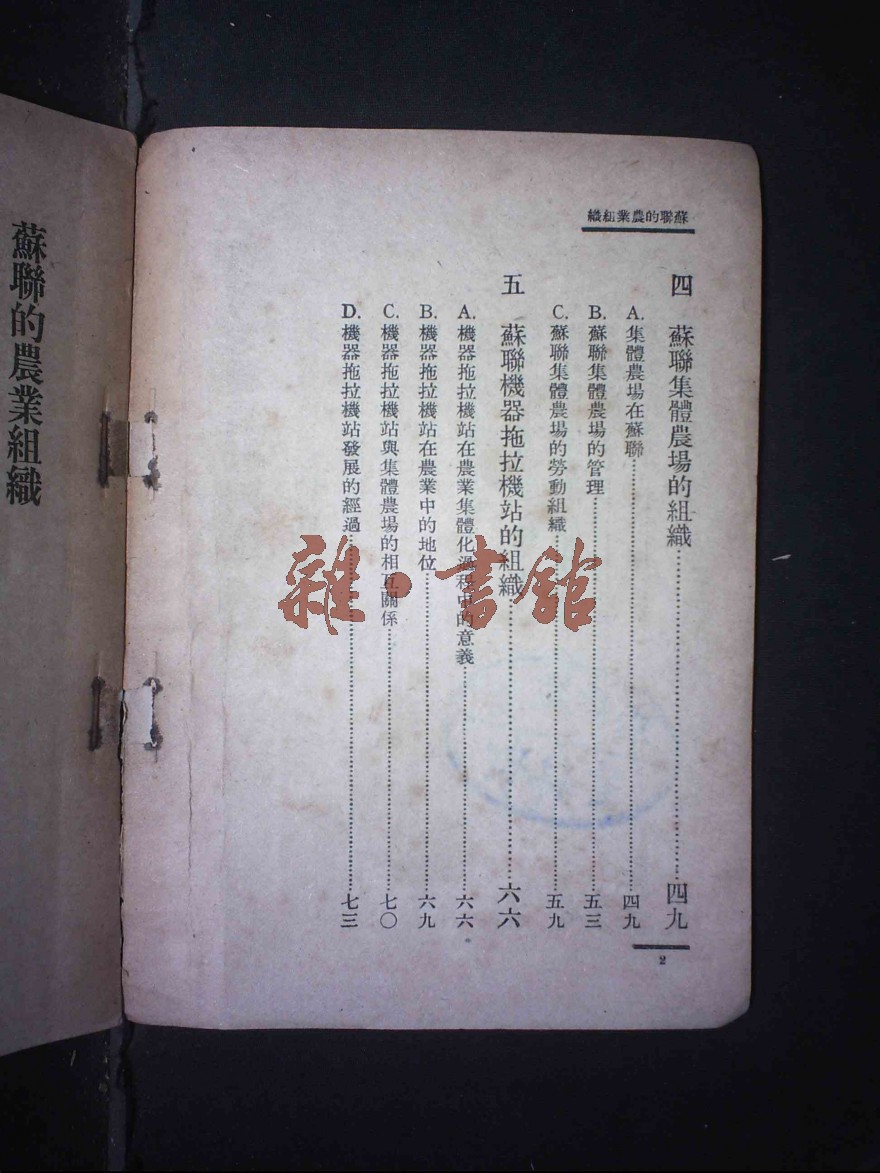 蘇聯的農業組織
四 蘇聯集體農場的組織……四九
A. 集體農場在蘇聯……四九
B. 蘇聯集體農場的管理……五三
C. 蘇聯集體農場的勞動組織……五九
五 蘇聯機器拖拉機站的組織……六六
A. 機器拖拉機站在農業集體化過程中的意義……六六
B. 機器拖拉機站在農業中的地位……六九
C. 機器拖拉機站與集體農場的相互關係……七〇
D. 機器拖拉機站發展的經過……七三
2
雜·書館
蘇聯的農業組織